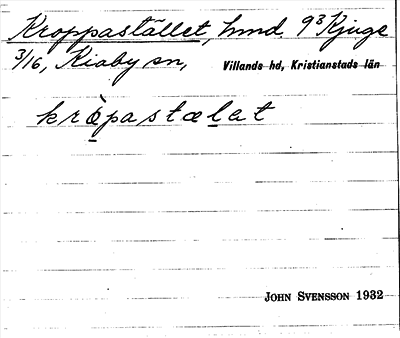 Kroppastället, hmd. 9³ Kjuge
3/16, Kiaby sn, Villands hd, Kristianstads län
krò̱pastæḻat
JOHN SVENSSON 1932